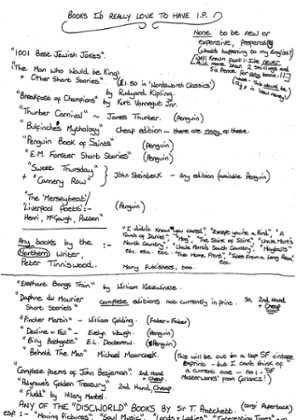 BOOKS I'D REALLY LOVE TO HAVE I.P.
None to be new or
expensive, preferably
"1001 Best Jewish Jokes".
"The Man who would be King
+ Other Short Stories" (£1.50 in 'Wordsworth Classics')
by Rudyard Kipling.
"Breakfast of Champions" by Kurt Vonnegut Jnr.
"Thurber Carnival" ~ James Thurber. (Penguin)
"Bulfinches Mythology" Cheap edition – there are many of these.
"Penguin Book of Saints" (Penguin)
"E.M. Forster Short Stories" (Penguin)
"Sweet Thursday"
+ "Cannery Row" John Steinbeck – Any edition
"The 'Merseybeat'/
'Liverpool Poets' :- (Penguin)
Henri, McGough, Patten
Any books by the :-
Northern Writer,
Peter Tinniswood.
"I didn't know you cared". "Except you're a Bird". "A
Touch of Daniel". "Mog". "The Stirk of Stirk". "Uncle Mort's
North Country". "Uncle Mort's South Country". "Hayballs".
etc. etc. etc. "The Home Front". "Tales From a Long Room"
etc
Many Publishers, bbm.
"Elephants Bangs Train" by William Kotzwinkle.
"Daphne du Maurier
Short Stories" complete editions not currently in print. So, 2nd Hand
+ Cheap.
"Pincher Martin" – William Golding. (Faber + Faber)
"Decline + Fall" – Evelyn Waugh. (Penguin)
"Billy Bathgate" E.L. Doctorow. (Penguin)
"Behold The Man" Michael Moorcock. (This will be out in a top SF vintage
reprints – but I can't think of
a current one – no: 'SF
Masterworks' from Gollancz!)
Complete poems of John Betjeman. 2nd Hand
+ Cheap.
"Palgrave's Golden Treasury" 2nd Hand, Cheap.
"Fludd" by Hilary Mantel.
ANY OF THE "DISCWORLD" BOOKS BY Sir T. Pratchett. (Corgi Paperbacks)
esp :- "Moving Pictures". "Soul Music". "Lords + Ladies". "Interesting Times"